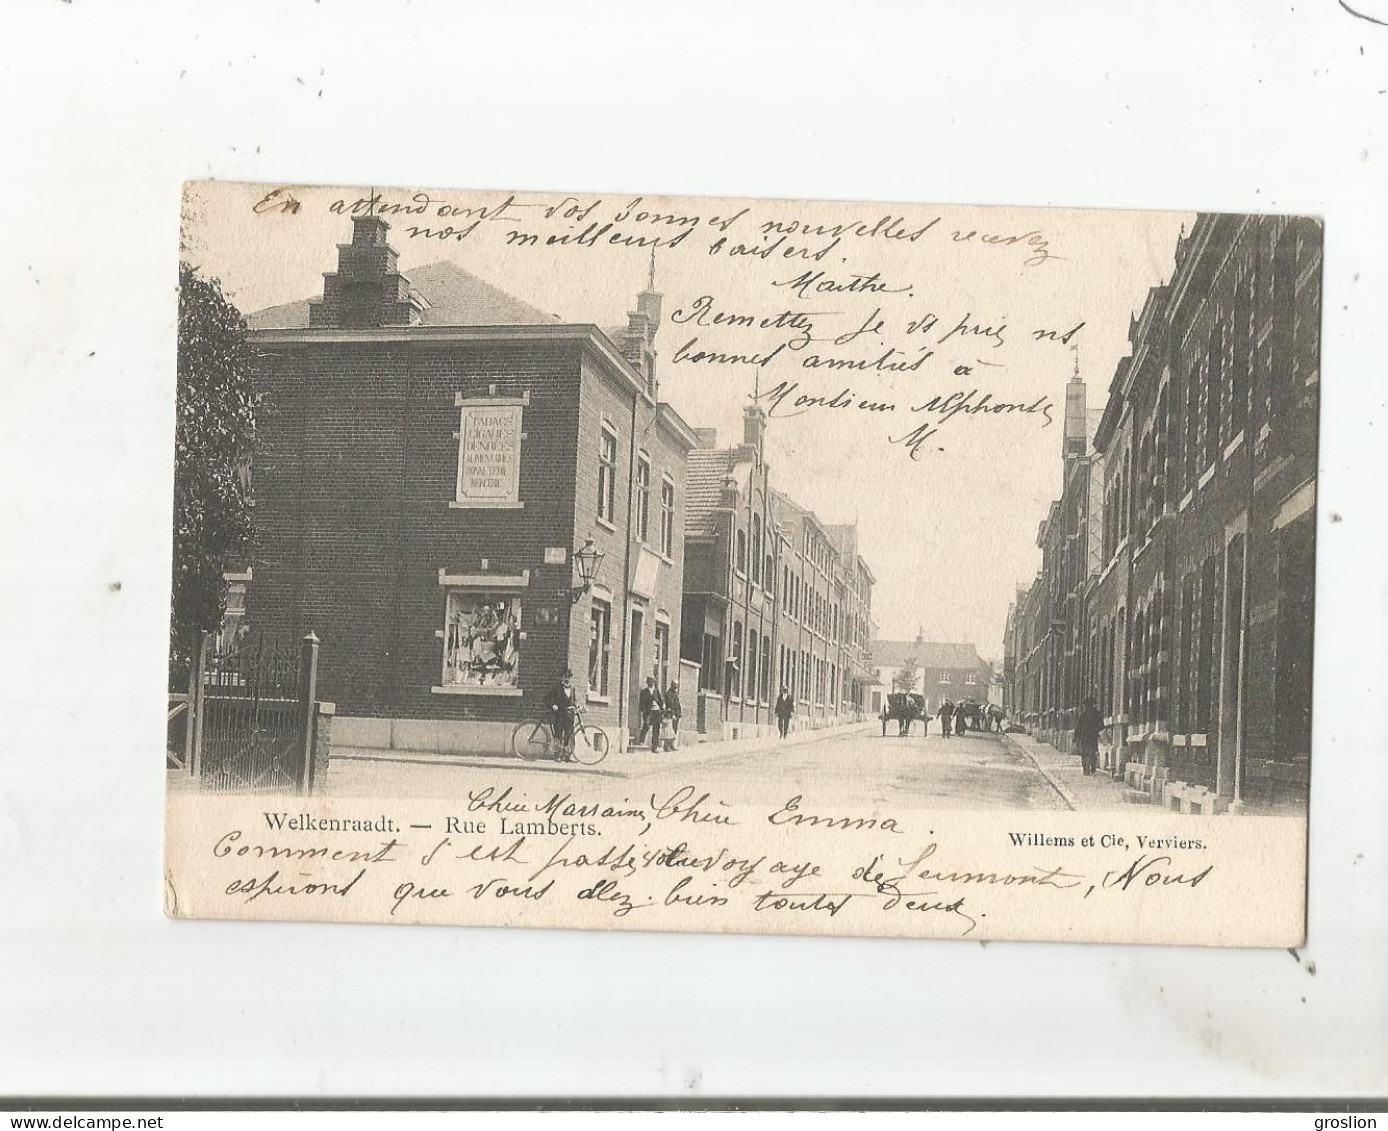 En attendant vos bonnes nouvelles recevez
nos meilleurs baisers.
Marthe.
Remettez Je vs prie ns
bonnes amitiés à
Monsieur Alphonse
M.
TABACS
CIGARES
DENRÉES
ALIMENTAIRES
BONNETERIE
MERCERIE
Chère Marraine, Chère Emma.
Welkenraadt. — Rue Lamberts.
Willems et Cie, Verviers.
Comment s'est passé votre voyage de Seumont, Nous
espérons que vous allez bien toutes deux.
groslion